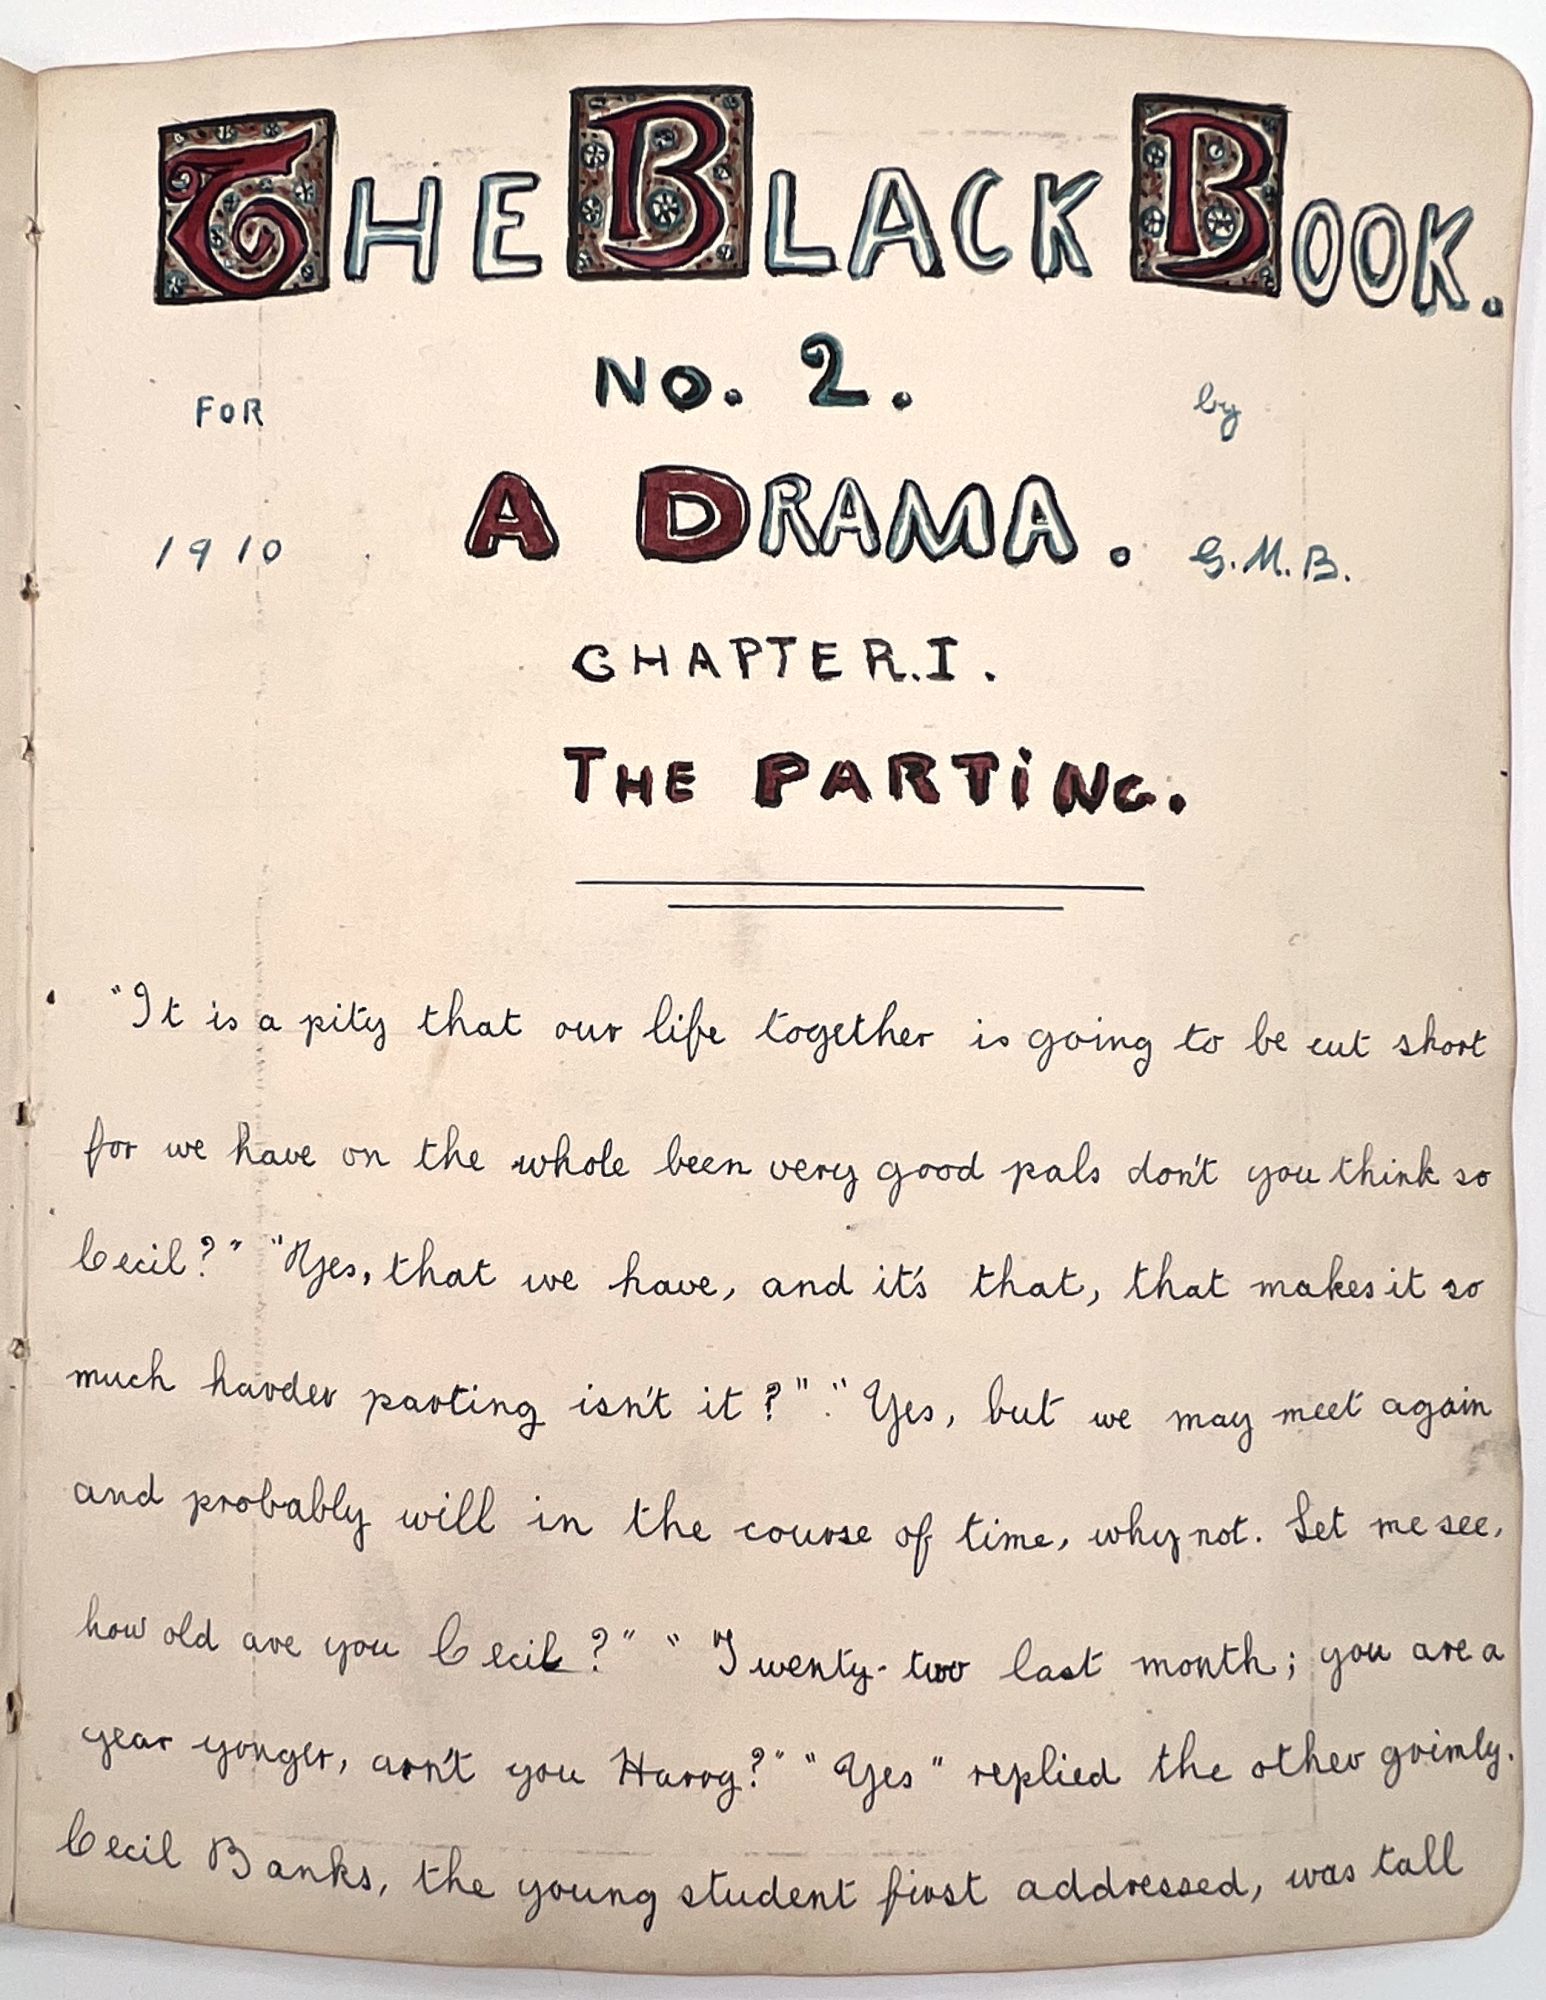 THE BLACK BOOK.
No. 2.
FOR
by
A DRAMA.
1910
G.M.B.
CHAPTER.I.
THE PARTING.
"It is a pity that our life together is going to be cut short
for we have on the whole been very good pals don't you think so
Cecil?" "Yes, that we have, and it's that, that makes it so
much harder parting isn't it?" "Yes, but we may meet again
and probably will in the course of time, why not. Let me see,
how old are you Cecil?" "Twenty-two last month; you are a
year yonger, arn't you Harry?" "Yes" replied the other grimly.
Cecil Banks, the young student first addressed, was tall